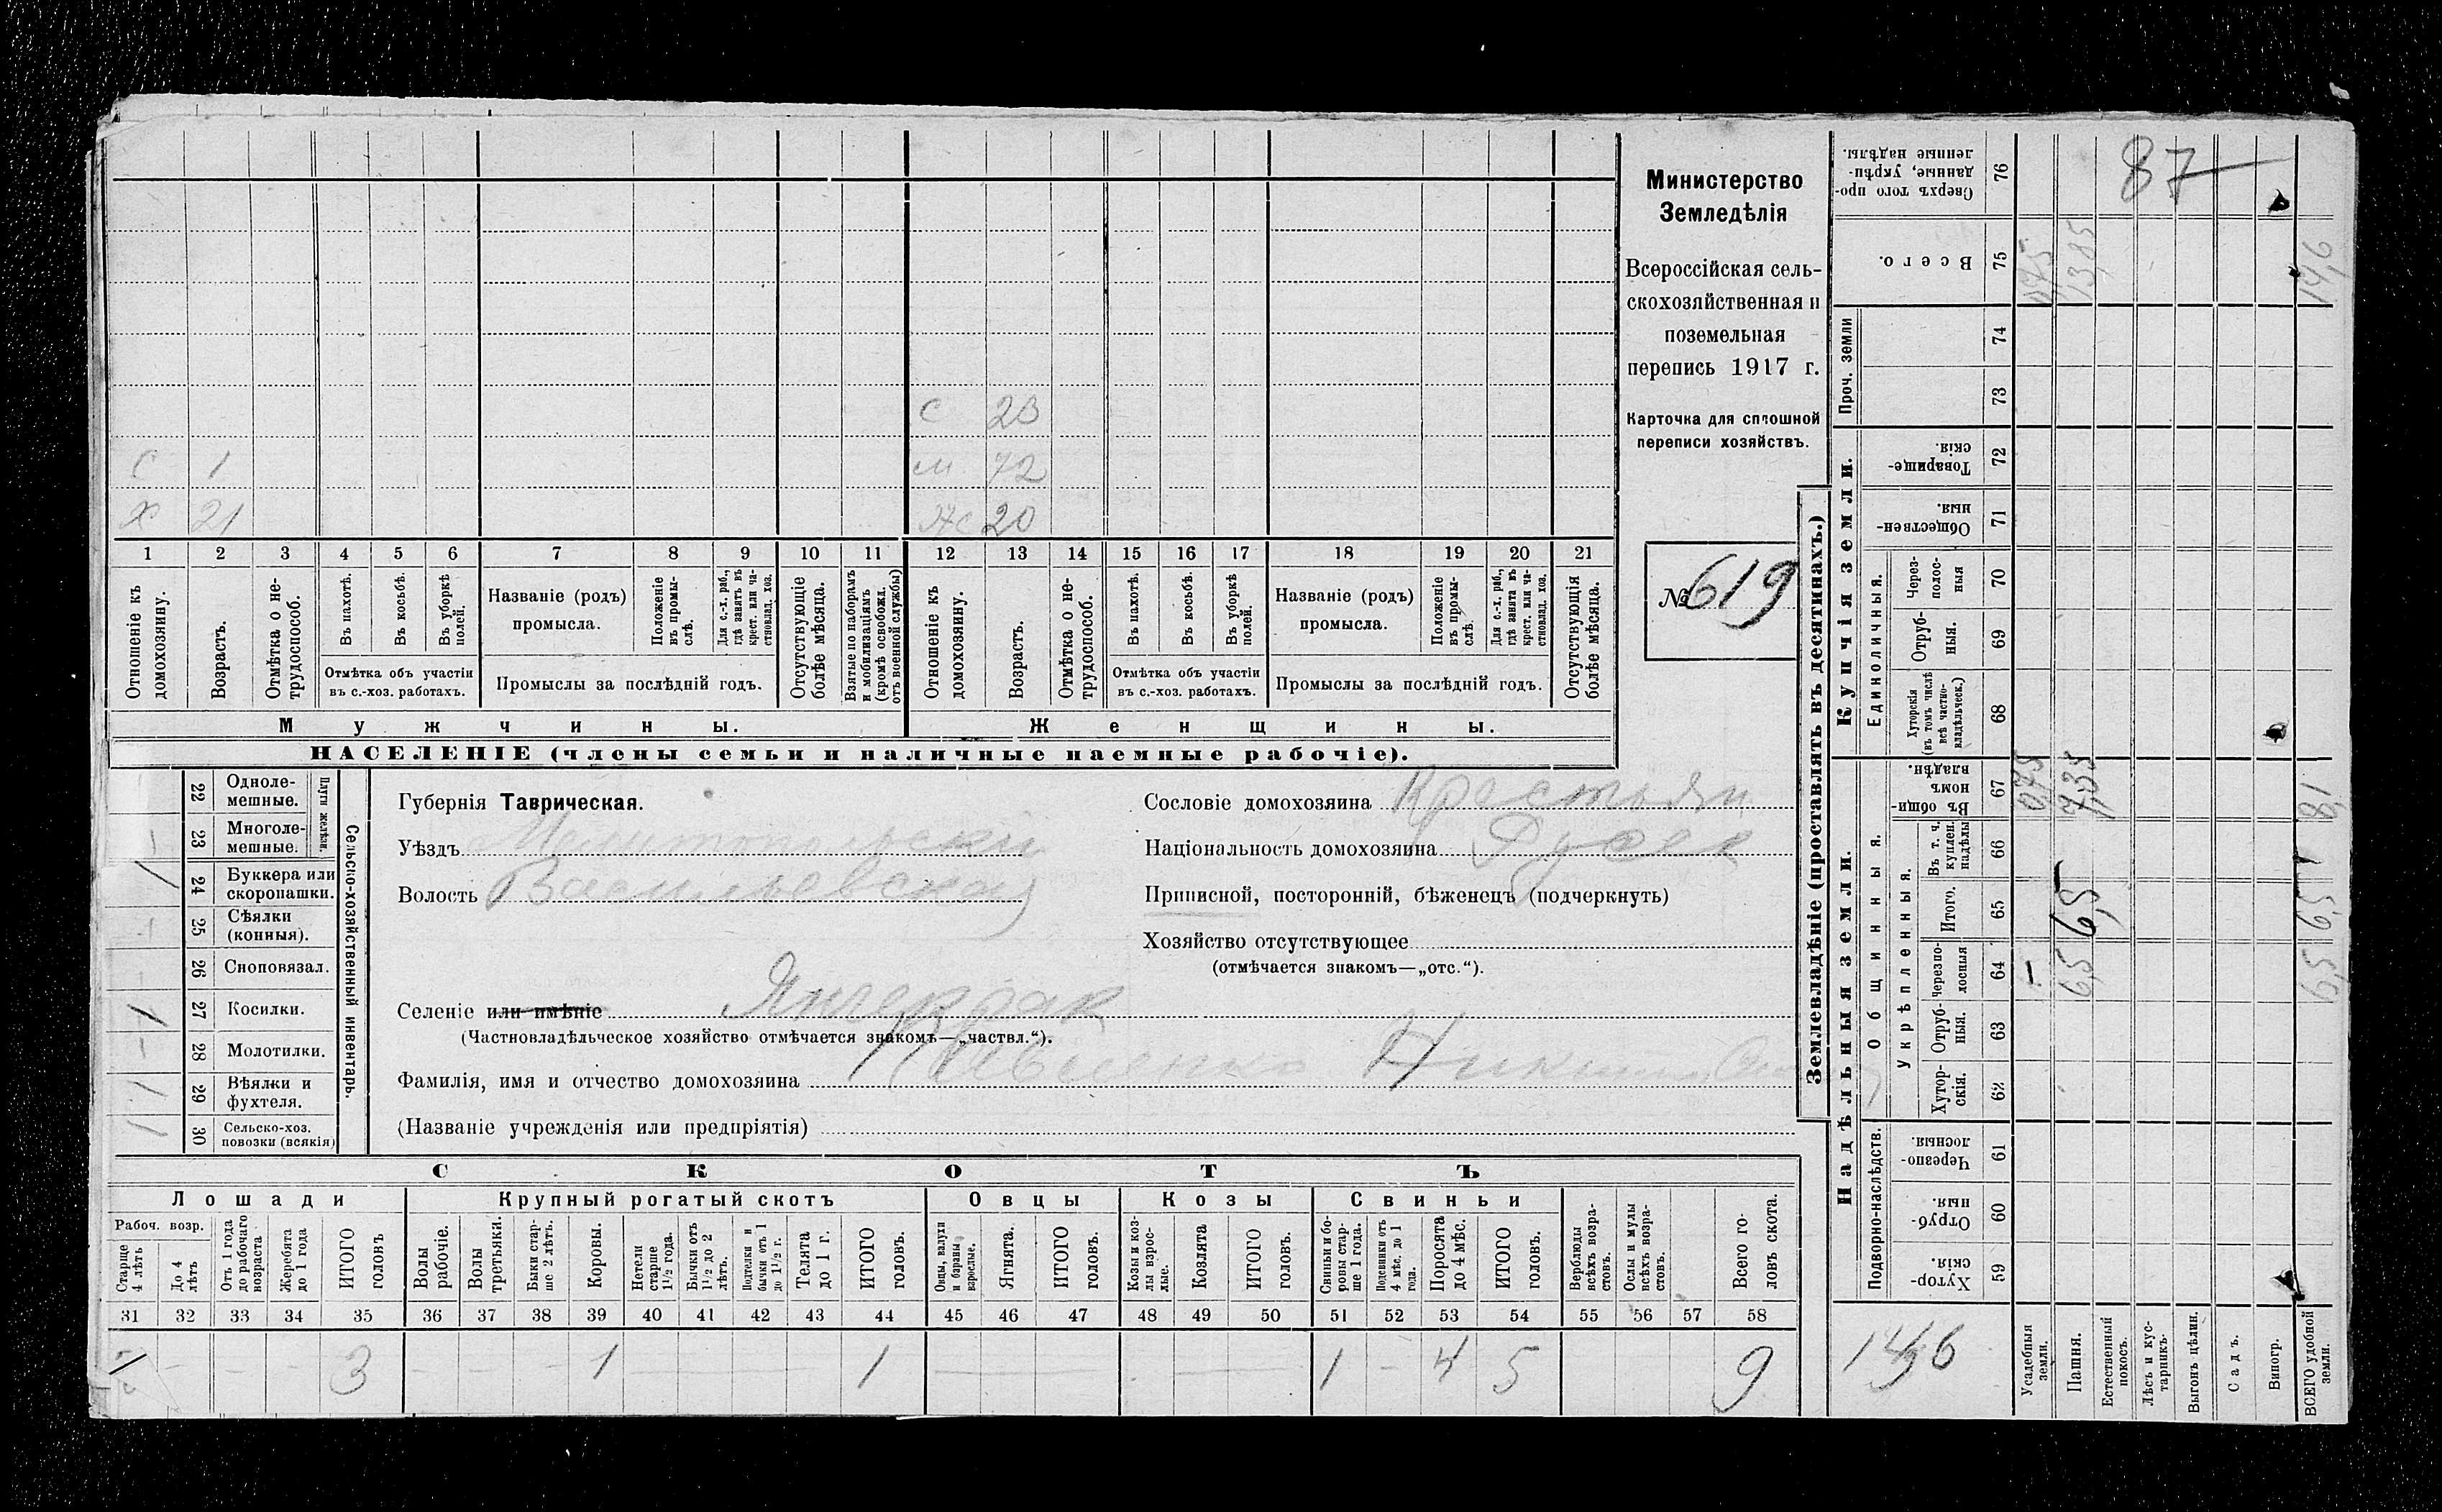 С 23
С 1 м 72
Х 21 Ж 20
1 2 3 4 5 6 7 8 9 10 11 12 13 14 15 16 17 18 19 20 21
Отношеніе къ домохозяину.
Возрастъ.
Отмѣтка о не-
трудоспособ.
Въ пахотѣ.
Въ косьбѣ.
Въ уборкѣ
полей.
Отмѣтка объ участіи
въ с.-хоз. работахъ.
Названіе (родъ)
промысла.
Положеніе
въ промы-
слѣ.
Для с.-х. раб.,
гдѣ занятъ въ
крест. или ча-
стновлад. хоз.
Промыслы за послѣдній годъ.
Отсутствующіе
болѣе мѣсяца.
Взятые по наборамъ
и мобилизаціямъ
(кромѣ освобожд.
отъ военной службы)
Отношеніе къ
домохозяину.
Возрастъ.
Отмѣтка о не-
трудоспособ.
Въ пахотѣ.
Въ косьбѣ.
Въ уборкѣ
полей.
Отмѣтка объ участіи
въ с.-хоз. работахъ.
Названіе (родъ)
промысла.
Положеніе
въ промы-
слѣ.
Для с.-х. раб.,
гдѣ занята въ
крест. или ча-
стновлад. хоз.
Промыслы за послѣдній годъ.
Отсутствующія
болѣе мѣсяца.
Мужчины.
Женщины.
НАСЕЛЕНІЕ (члены семьи и наличные наемные рабочіе).
Министерство
Земледѣлія
Всероссійская сель-
скохозяйственная и
поземельная
перепись 1917 г.
Карточка для сплошной
переписи хозяйствъ.
№ 619
22 Одноле-
мешные.
23 Многоле-
мешные.
Плуги желѣзн.
24 Буккера или
скоропашки.
25 Сѣялки
(конныя).
26 Сноповязал.
27 Косилки.
28 Молотилки.
29 Вѣялки и
фухтеля.
30 Сельско-хоз.
повозки (всякія)
Сельско-хозяйственный инвентарь.
Губернія Таврическая.
Уѣздъ Мелитопольски
Волость Васильевская
Селеніе или имѣніе Янчекрак
(Частновладѣльческое хозяйство отмѣчается знакомъ—„частвл.“).
Фамилія, имя и отчество домохозяина
(Названіе учрежденія или предпріятія)
Сословіе домохозяина Крестьян
Національность домохозяина Русск
Приписной, посторонній, бѣженецъ (подчеркнуть)
Хозяйство отсутствующее
(отмѣчается знакомъ—„отс.“).
СКОТЪ
Лошади
Крупный рогатый скотъ
Овцы
Козы
Свиньи
Рабоч. возр.
Старше
4 лѣтъ
До 4
лѣтъ
Отъ 1 года
до рабочаго
возраста
Жеребята
до 1 года
ИТОГО
головъ
Волы
рабочіе.
Волы
третьяки.
Быки стар-
ше 2 лѣтъ.
Коровы.
Нетели
старше
1½ года.
Бычки отъ
1½ до 2
лѣтъ.
Подтелки и
бычки отъ 1
до 1½ г.
Телята
до 1 г.
ИТОГО
головъ.
Овцы, валухи
и бараны
взрослые.
Ягнята.
ИТОГО
головъ.
Козы и коз-
лы взрос-
лые.
Козлята
ИТОГО
головъ.
Свиньи и бо-
ровы стар-
ше 1 года.
Подсвинки отъ
4 мѣс. до 1
года.
Поросята
до 4 мѣс.
ИТОГО
головъ.
Верблюды
всѣхъ возра-
стовъ.
Ослы и мулы
всѣхъ возра-
стовъ.
Всего го-
ловъ скота.
31 32 33 34 35 36 37 38 39 40 41 42 43 44 45 46 47 48 49 50 51 52 53 54 55 56 57 58
3 1 1 1 4 5 9
Землевладѣніе (проставлять въ десятинахъ.)
Надѣльныя земли.
Купчія земли.
Проч. земли
Подворно-наслѣдств.
Общинныя.
Укрѣпленныя.
Единоличныя.
Сверхъ того про-
данные, укрѣп-
ленные надѣлы.
76
87
Всего.
75
0,75 13,85 14,6
74
73
Товарище-
скія
72
Обществен-
ныя.
71
Через-
полос-
ныя
70
Отруб-
ныя.
69
Хуторскія
(въ томъ числѣ
всѣ частно-
владѣльческ.)
68
Въ общи-
номъ
владѣн.
67
0,75 7,35 8,1
Въ т. ч.
куплен.
надѣлы
66
Итого.
65
6,5 6,5
Черезпо-
лосныя
64
6,5 6,5
Отруб-
ныя.
63
Хутор-
скія.
62
Черезпо-
лосныя.
61
Отруб-
ныя.
60
Хутор-
скія.
59
14,6
Усадебныя
земли.
Пашня.
Естественный
покосъ.
Лѣсъ и кус-
тарникъ.
Выгонъ цѣлин.
Садъ.
Виногр.
ВСЕГО удобной
земли.